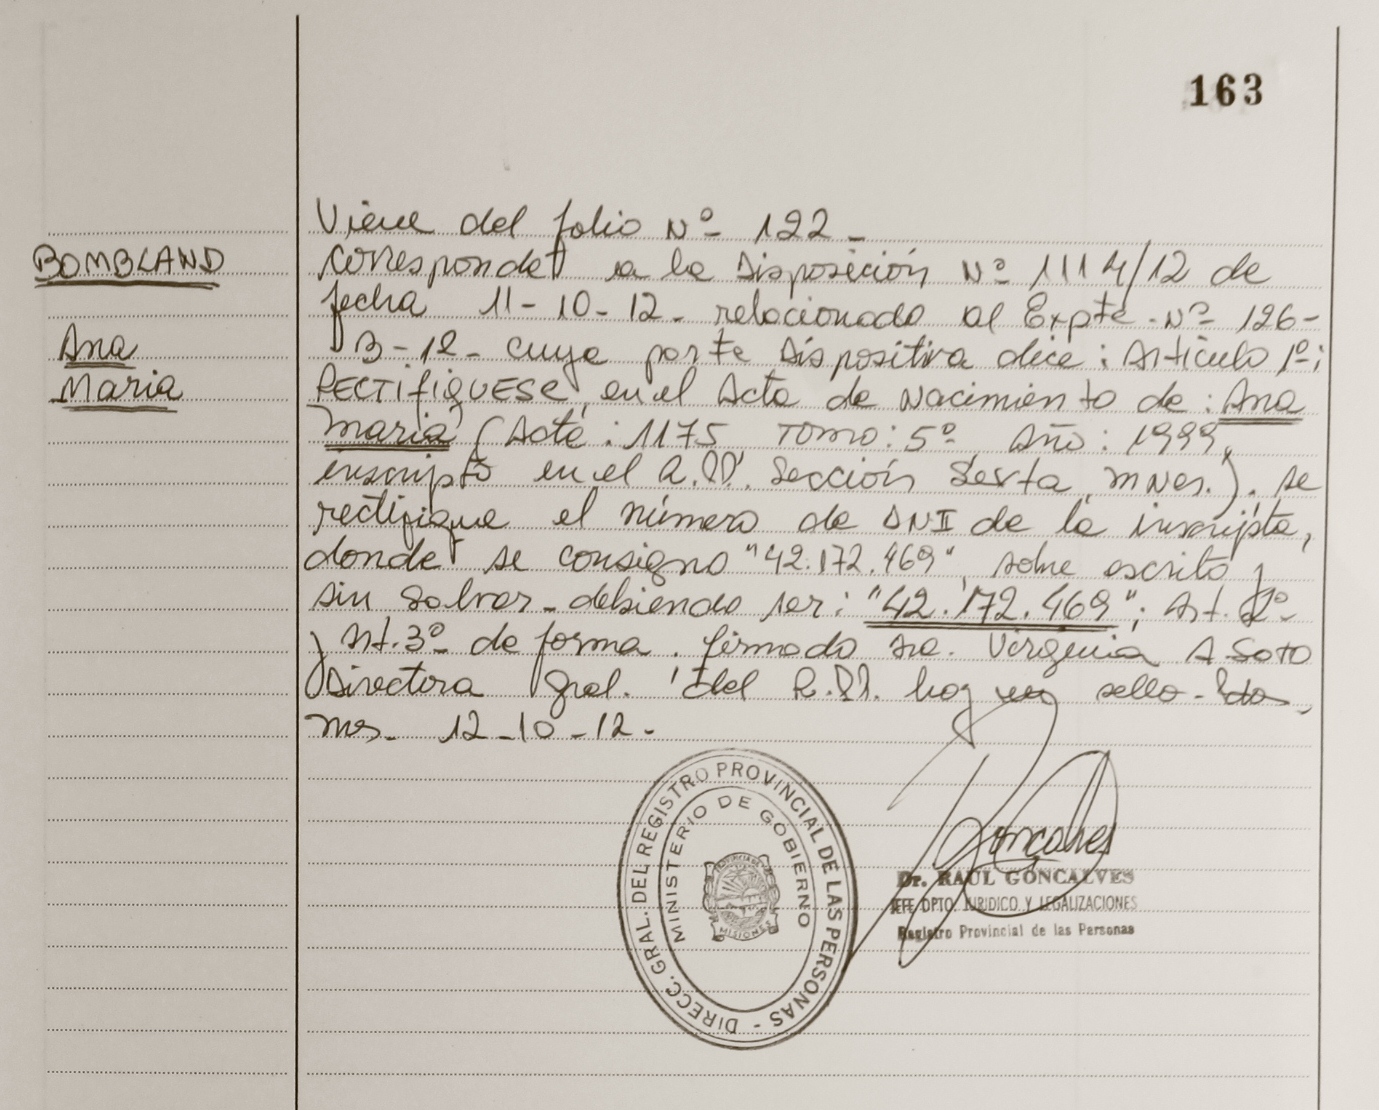 163
BOMBLAND
Ana
Maria
Viene del folio Nº 122 -
corresponde a la Disposición Nº 1114/12 de
fecha 11-10-12 - relacionado al Expte - Nº 126-
B-12 - cuya parte dispositiva dice: Artículo 1º:
RECTIFIQUESE, en el Acta de Nacimiento de: Ana
Maria (Acta: 1175 Tomo: 5º Año: 1999,
inscripto en el R.P. Sección Sexta, Mnes.). se
rectifique el número de DNI de la inscripta,
donde se consigno "42.172.469", sobre escrito y
sin salvar - debiendo ser: "42.172.469"; Art. 2º
y Art. 3º de forma. firmado Sra. Virginia A Soto
Directora Gral. del R.P. hay un sello - Pdas
Mnes. 12-10-12.-
DIRECC. GRAL. DEL REGISTRO PROVINCIAL DE LAS PERSONAS -
MINISTERIO DE GOBIERNO
PROVINCIA DE
MISIONES
Goncalves
Dr. RAUL GONCALVES
JEFE DPTO. JURIDICO Y LEGALIZACIONES
Registro Provincial de las Personas